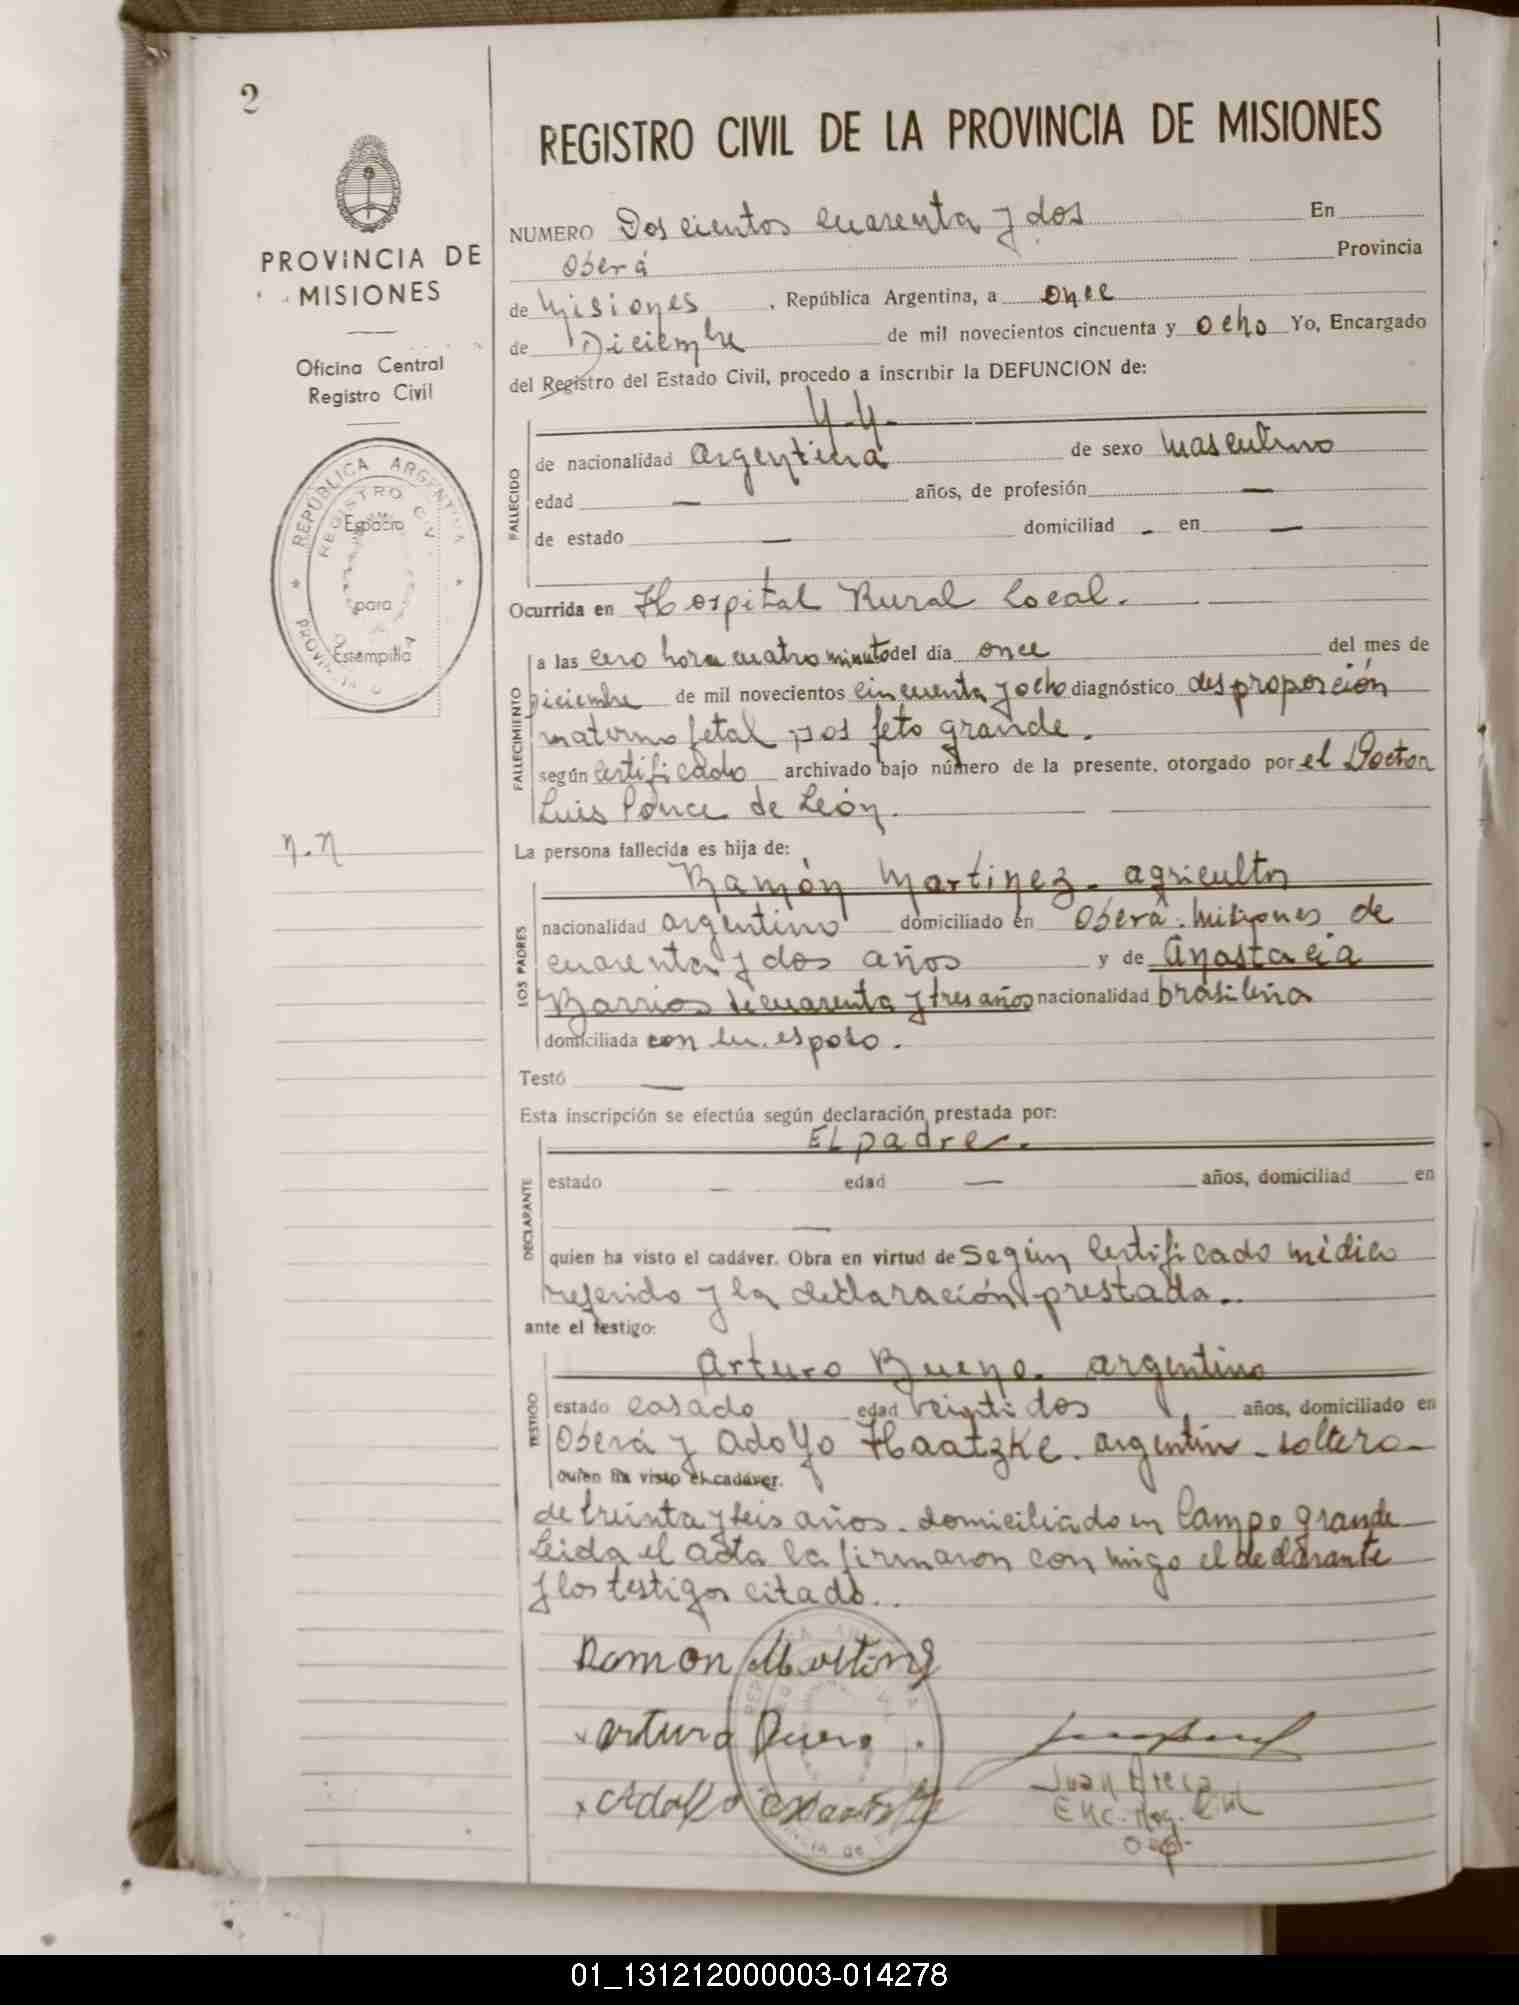 2
REGISTRO CIVIL DE LA PROVINCIA DE MISIONES
PROVINCIA DE
MISIONES
Oficina Central
Registro Civil
REPÚBLICA ARGENTINA
REGISTRO CIV
Espacio
para
Estampilla
NUMERO Dos cientos cuarenta y dos En
Oberá Provincia
de Misiones, República Argentina, a once
de Diciembre de mil novecientos cincuenta y ocho Yo, Encargado
del Registro del Estado Civil, procedo a inscribir la DEFUNCION de:
N.N.
FALLECIDO
de nacionalidad argentina de sexo masculino
edad — años, de profesión —
de estado — domiciliad - en —
Ocurrida en Hospital Rural Local.
FALLECIMIENTO
a las cero hora cuatro minuto del día once del mes de
Diciembre de mil novecientos cincuenta y ocho diagnóstico desproporción
materno fetal por feto grande.
según certificado archivado bajo número de la presente, otorgado por el Doctor
Luis Ponce de León.
N.N
La persona fallecida es hija de:
LOS PADRES
Ramón Martinez - agricultor
nacionalidad argentino domiciliado en Oberá. Misiones de
cuarenta y dos años y de Anastacia
Barrios de cuarenta y tres años nacionalidad brasileña
domiciliada con su esposo.
Testó —
Esta inscripción se efectúa según declaración prestada por:
DECLARANTE
El padre.
estado — edad — años, domiciliad en
—
quien ha visto el cadáver. Obra en virtud de Según Certificado médico
referido y la declaración prestada..
ante el testigo:
TESTIGO
Arturo Bueno. argentino
estado casado edad veinti dos años, domiciliado en
Oberá y Adolfo Haatzke. argentino - soltero -
quien ha visto el cadáver.
de treinta y seis años. domiciliado en Campo grande
Leida el acta la firmaron con migo el declarante
y los testigos citado..
Ramon Martinez
x Arturo Bueno.
x Adolfo
Juan
Enc. Reg. Civil
01_131212000003-014278